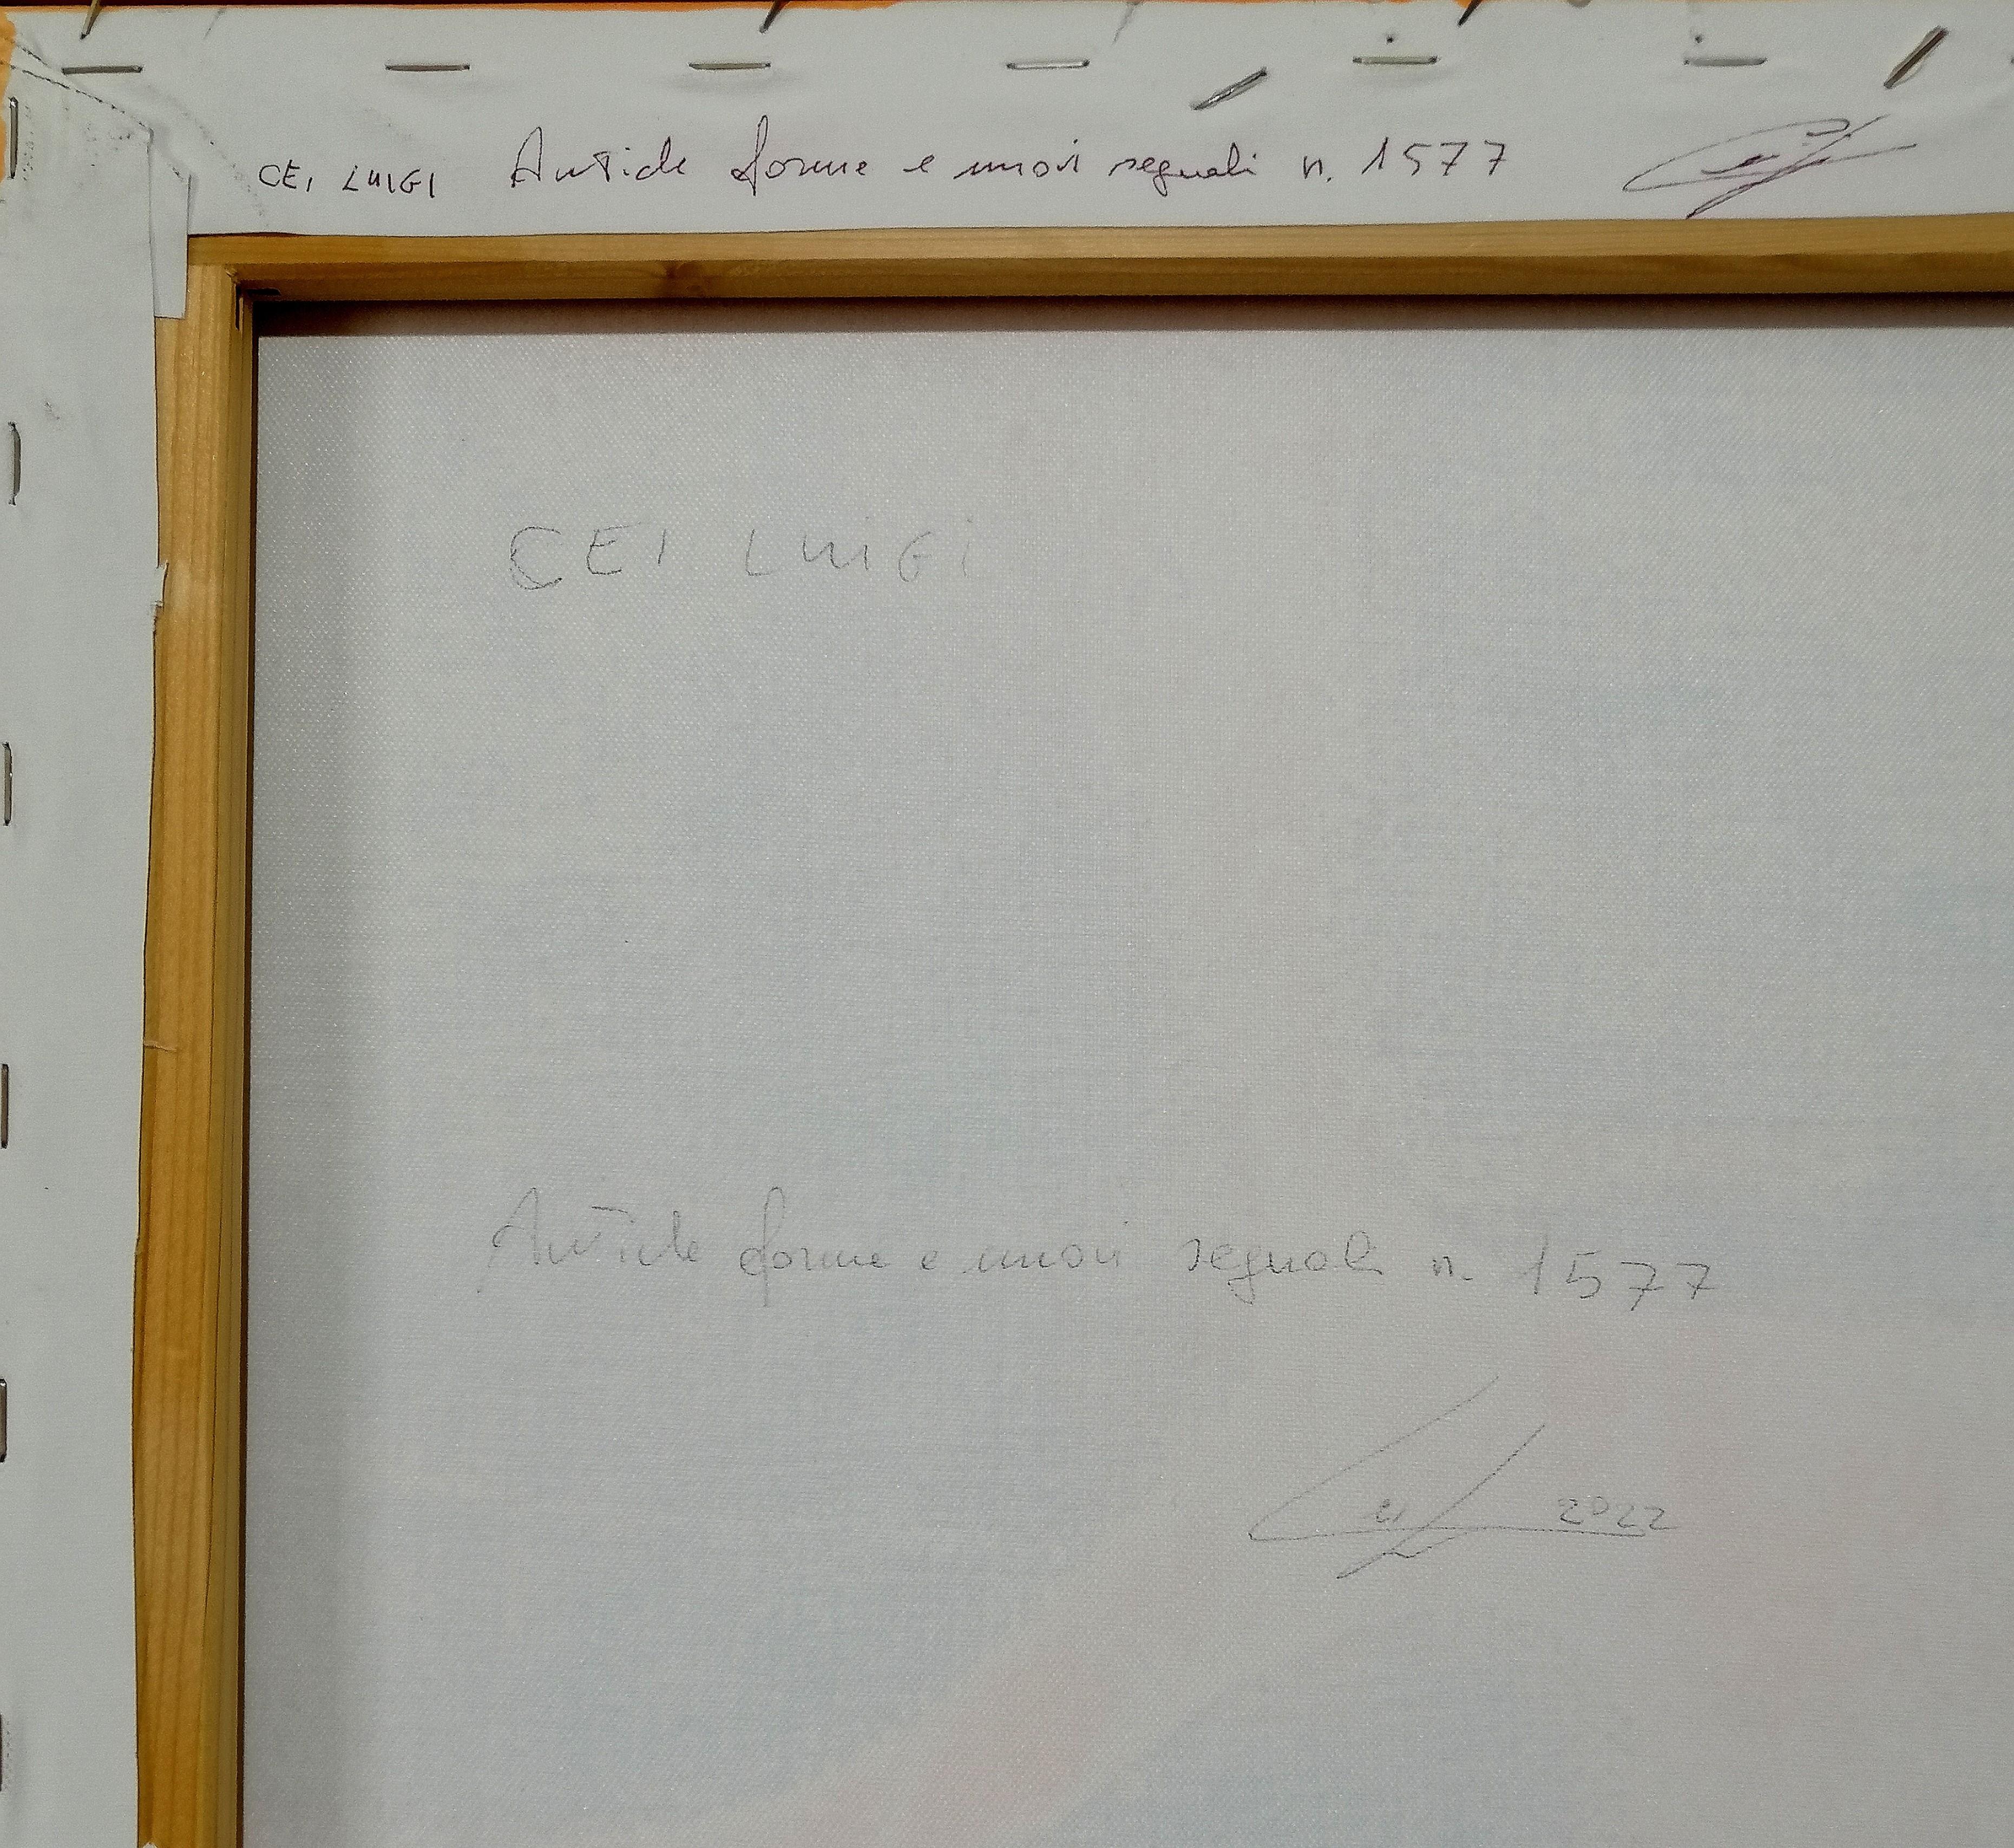 CEI LUIGI Antiche forme e nuovi segnali n. 1577 Cei
CEI LUIGI
Antiche forme e nuovi segnali n. 1577
Cei 2022